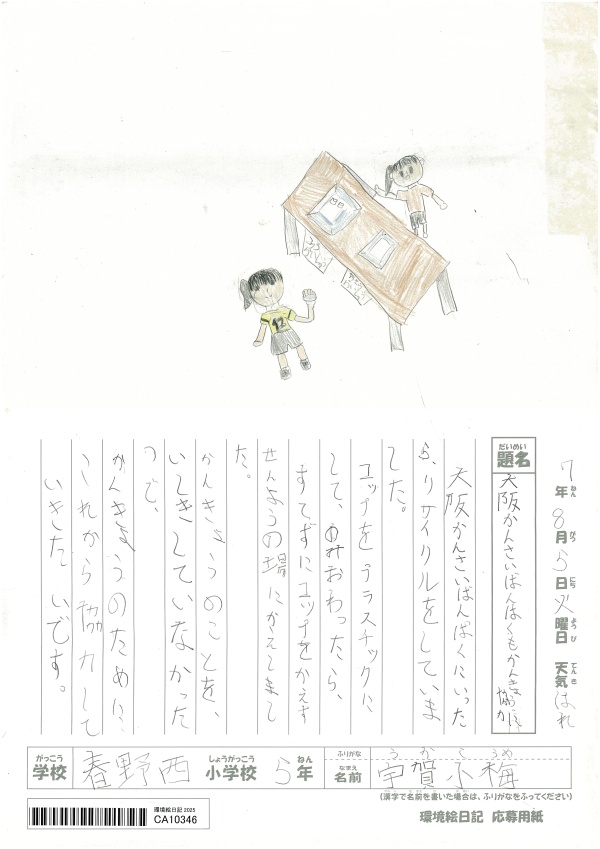 7年ねん8月がつ5日にち火曜日ようび 天気てんき はれ
だいめい
題名
大阪かんさいばんぱくもかんきょうに協力
大阪かんさいばんぱくにいった
ら、リサイクルをしていま
した。
コップをプラスチックに
して、のみおわったら、
すてずにコップをかえす
せんようの場にかえしまし
た。
かんきょうのことを、
いしきしていなかった
ので、
かんきょうのために、
これから協力して
いきたいです。
がっこう
学校
春野西
しょうがっこう
小学校
5年ねん
ふりがな
うがこうめ
なまえ
名前
宇賀小梅
(漢字で名前を書いた場合は、ふりがなをふってください)
環境絵日記 2025
CA10346
環境絵日記 応募用紙
12